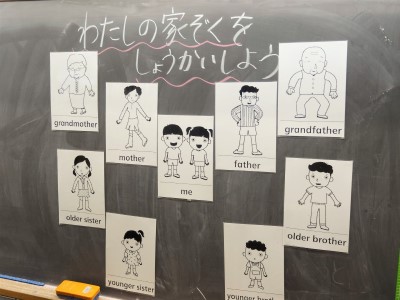 わたしの家ぞくを
しょうかいしよう
grandmother
mother
me
father
grandfather
older sister
older brother
younger sister
younger broth